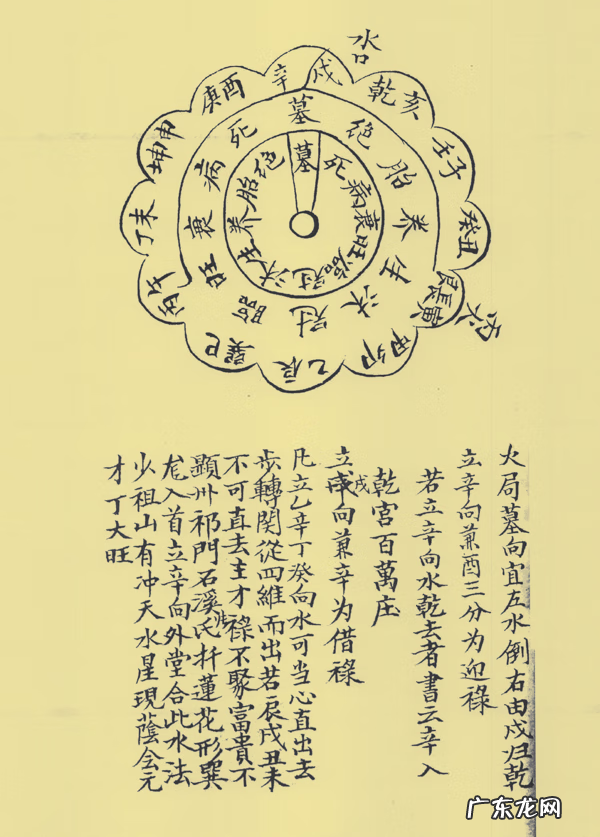 水口
辛戍
乾亥
壬子
癸丑
艮寅
甲卯
乙辰
巽巳
丙午
丁未
坤申
庚酉
墓绝胎养生沐冠臨旺衰病死
墓死病衰旺临冠沐生养胎绝
火局墓向宜左水倒右由戍归乾
立辛向兼酉三分为迎祿
若立辛向水乾去者書云辛入
乾宮百萬庄
立戍向兼辛为借祿
凡立乙辛丁癸向水可当心直出去
步轉関從四維而出若辰戍丑未
不可直去主才祿不聚富貴不
顕州祁門石溪氏扦蓮花形巽
龙入首立辛向外堂合此水法
少祖山有冲天水星現蔭会元
才丁大旺
广东龙网